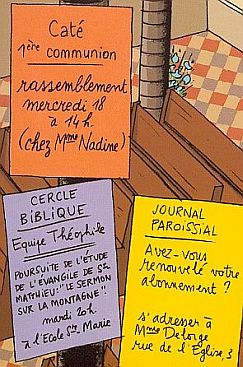 Caté
1ère communion
rassemblement
mercredi 18
à 14 h.
(chez Mme Nadine)
CERCLE
BIBLIQUE
Equipe Théophile
POURSUITE DE L'ÉTUDE
DE L'EVANGILE DE St
MATTHIEU: "LE SERMON
SUR LA MONTAGNE"!
mardi 20h.
à l'Ecole Ste Marie
JOURNAL
PAROISSIAL
Avez-vous
renouvelé votre
abonnement ?
s'adresser à
Mme Deloge
rue de l'Eglise 3